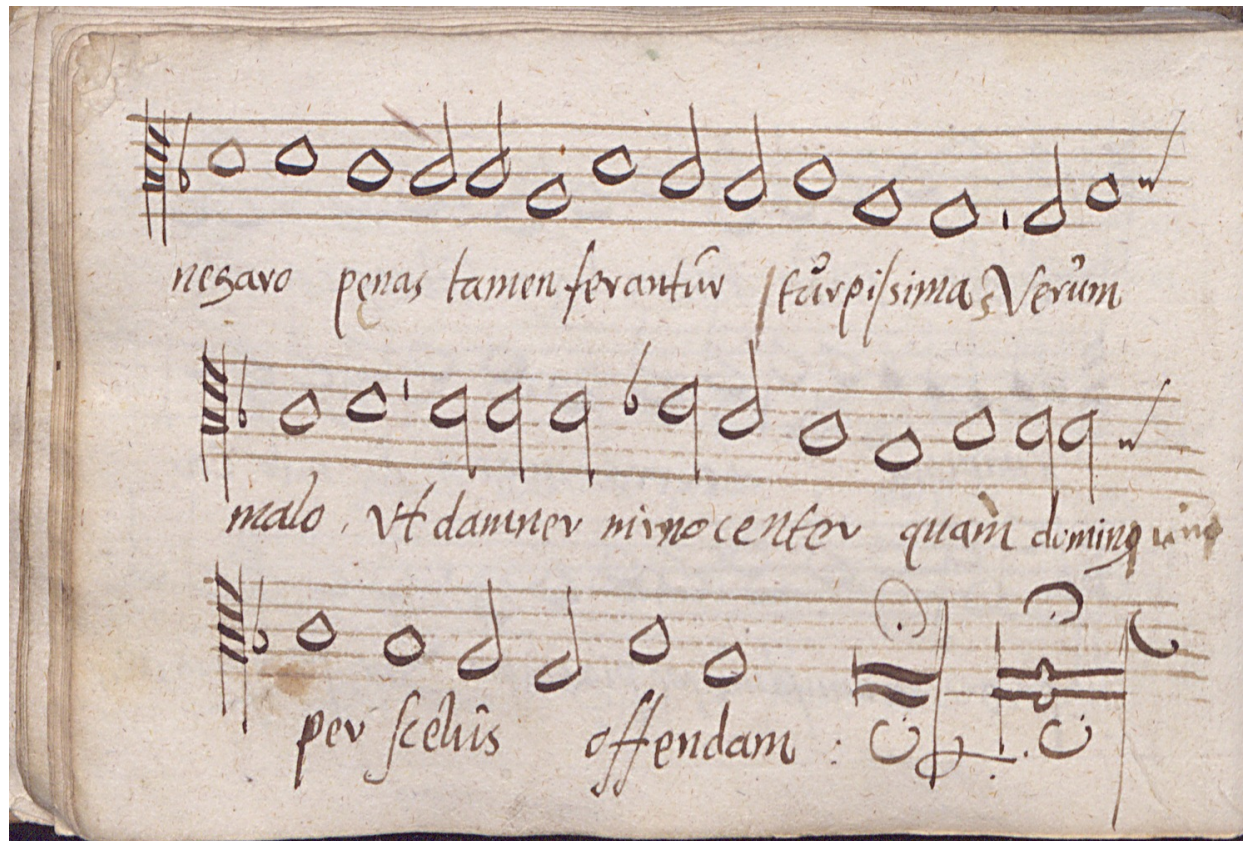 negaro pęnas tamen ferantur turpissima, Verum
malo. Vt damner innocenter quàm dominū
per scelus offendam :